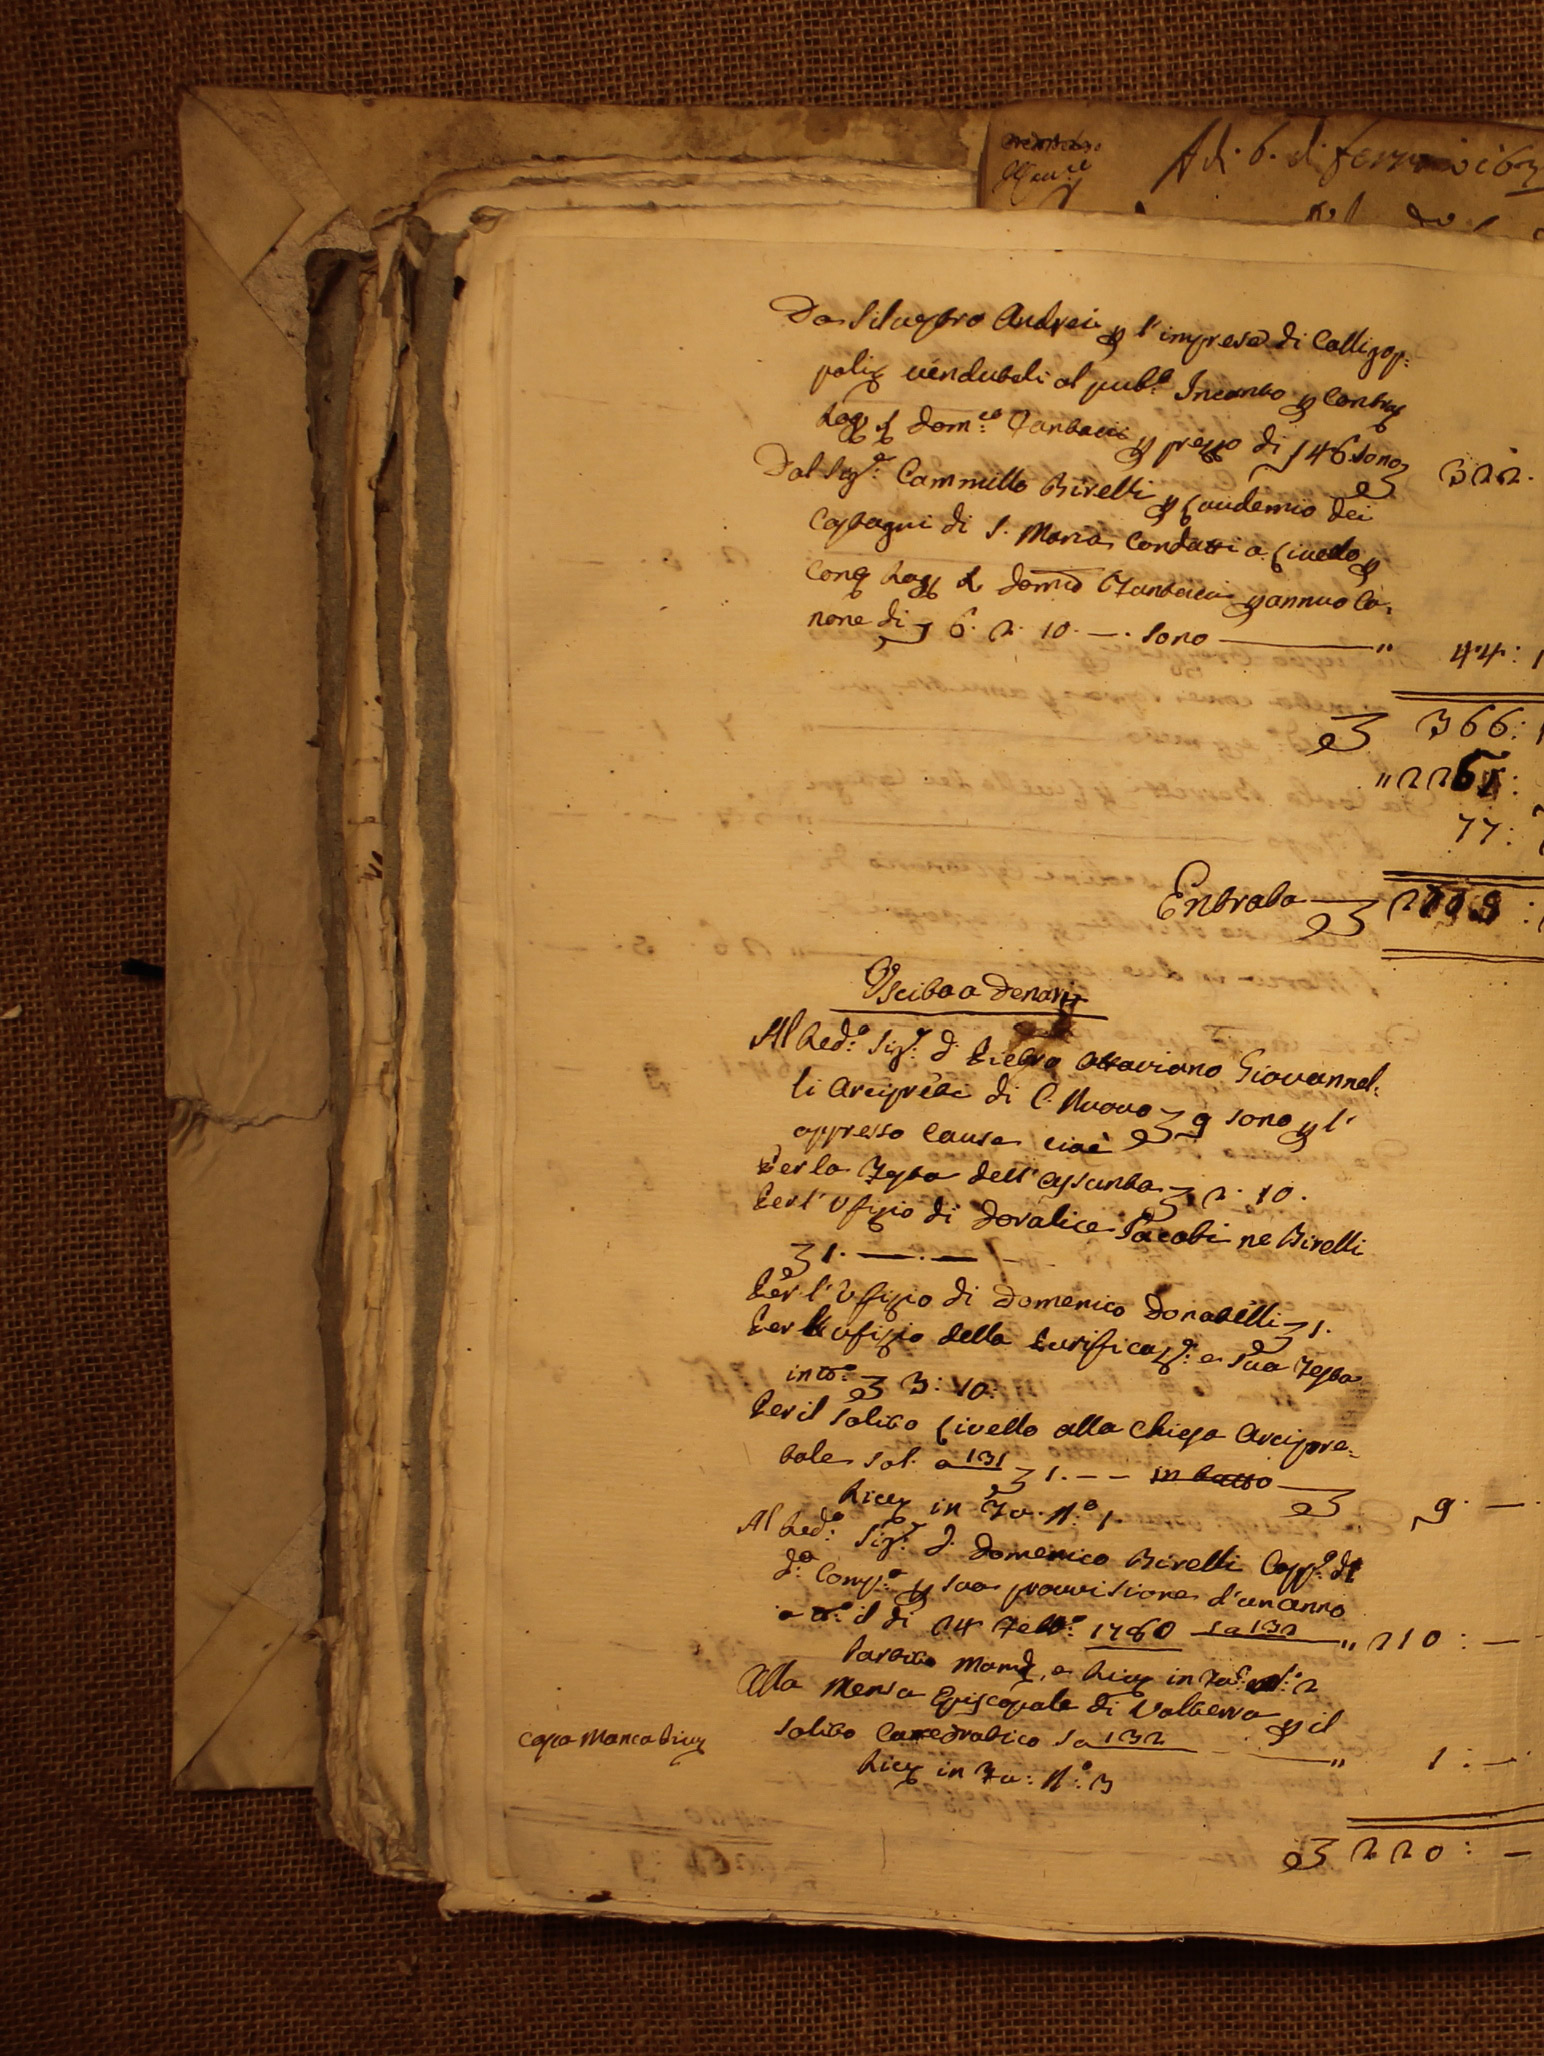 Adi. 6. di
Da Silvestro Andrei p l'impresa di Calligop:
palix vendutali al pub:º Incanto p Contrat
Rog: d Dom:co Fantacci p prezzo di ſ 46 sono 322.
Dal Sig:r Cammillo Birelli p Laudemio dei
Castagni di S. Maria Condotti a Livello p
Cont Rog d Domco Fantacci p annuo Ca-
none di ſ 6. 2. 10. —. sono — " 44:
366:
" 226
77:
Entrata
Uscita a Denari
Al Red:º Sig:r D. Pietro Ottaviano Giovannel-
li Arciprete di C. Nuovo 9 sono p l'
appresso cause cioè
Per la Festa dell'Assunta 2. 10.
Per l'Ufizio di Doralice Pacobi ne Birelli
1. — . —
Per l'Ufizio di Domenico Donatelli 1.
Per l'Ufizio della Purificaz:ne e sua Festa
in tt:º 3: 10:
Per il solito Livello alla Chiesa Arcipre-
tale sal. a 131 1. — — in tutto — 9. —.
Ricev in Fa. N:º 1.
Al Red:º Sig:r D. Domenico Birelli Capp:º di
d:ª Comp:ª p sua provvisione d'un anno
a tt:º il di 24 Febb:º 1760 s a 132 " 210: —
Partito Mand, e Ricev in Fa: N:º 2
Alla Mensa Episcopale di Volterra p il
solito Catedratico s a 132 — " 1: —
Ricev in Fa: N:º 3
Copa Manca Ricev
220: —